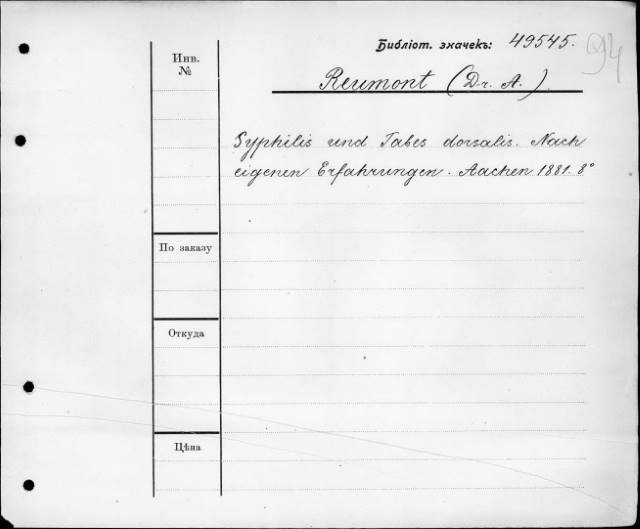 Библіот. значекъ: 49545.
94
Инв.
№
Reumont (Dr. A.)
Syphilis und Tabes dorsalis. Nach
eigenen Erfahrungen. Aachen 1881. 8°
По заказу
Откуда
Цѣна